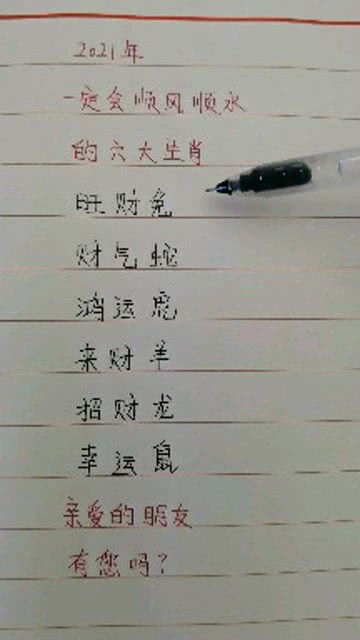 2021年
一定会顺风顺水
的六大生肖
旺财兔
财气蛇
鸿运虎
来财羊
招财龙
幸运鼠
亲爱的朋友
有您吗?